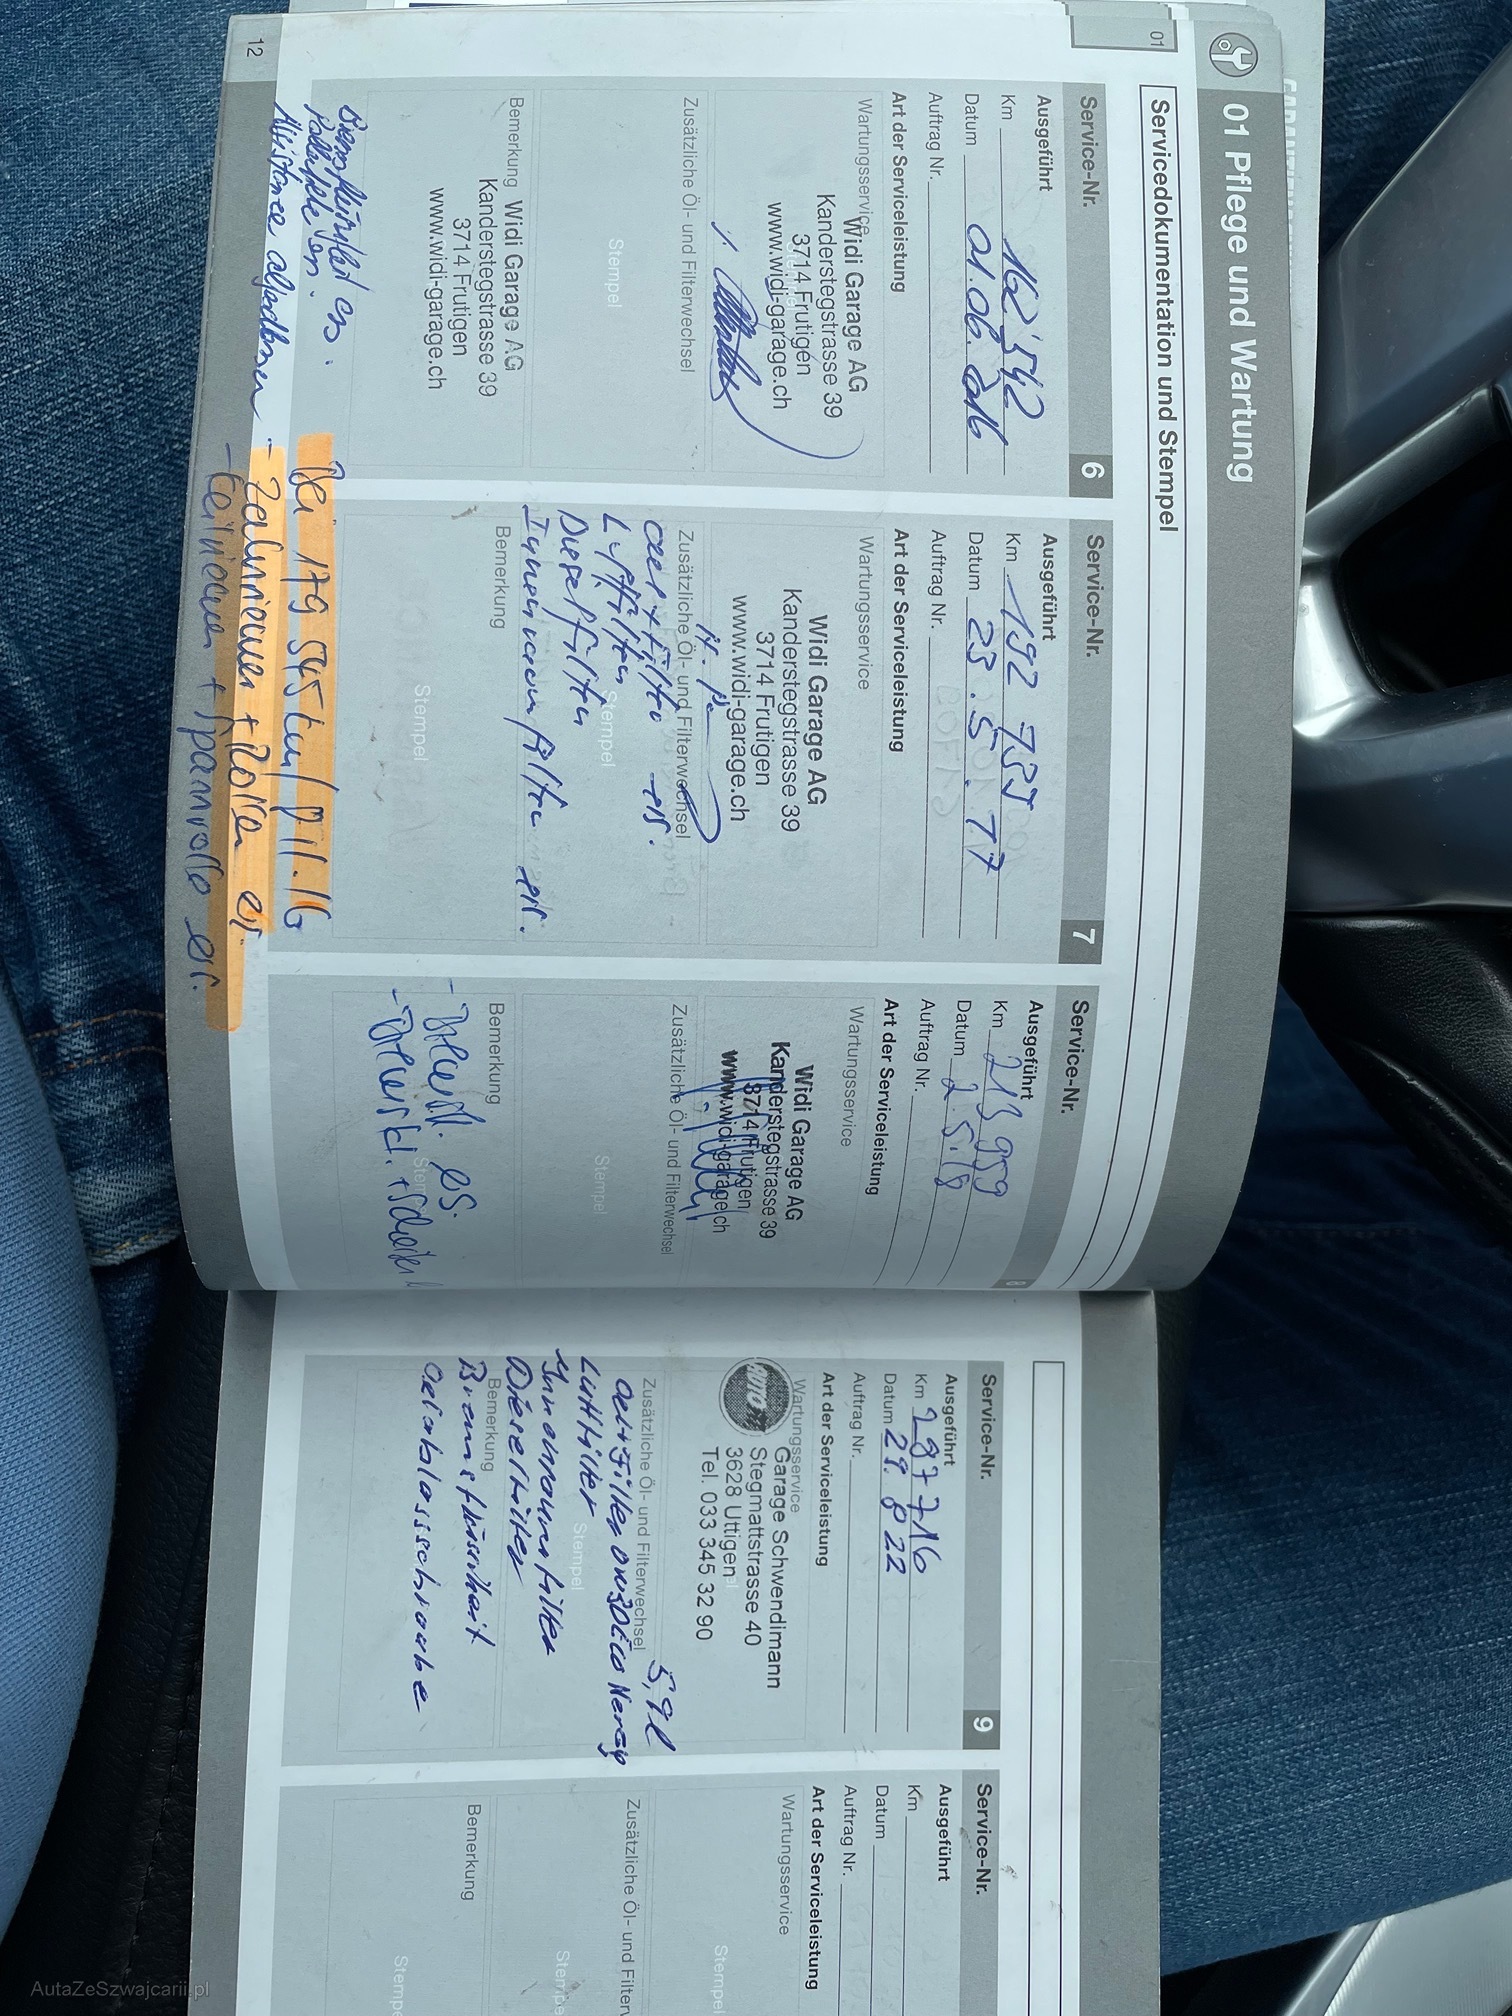 01 Pflege und Wartung
01
Servicedokumentation und Stempel
Service-Nr. 6
Ausgeführt
Km 162'542
Datum 01.06.2016
Auftrag Nr.
Art der Serviceleistung
Wartungsservice
Widi Garage AG
Kanderstegstrasse 39
3714 Frutigen
www.widi-garage.ch
Zusätzliche Öl- und Filterwechsel
Stempel
Bemerkung
Widi Garage AG
Kanderstegstrasse 39
3714 Frutigen
www.widi-garage.ch
Bremsflüssigkeit ers.
Pollenfilter ers.
Assistance
12
Service-Nr. 7
Ausgeführt
Km 192 755
Datum 23.5.17
Auftrag Nr.
Art der Serviceleistung
Wartungsservice
Widi Garage AG
Kanderstegstrasse 39
3714 Frutigen
www.widi-garage.ch
Zusätzliche Öl- und Filterwechsel
Oel + Filter ers.
Luftfilter
Stempel
Dieselfilter
Innenraumfilter ers.
Bemerkung
Stempel
Bei 179 545 km / M11.16
- Zahnriemen + Rollen er.
- Keilriemen + Spannrolle er.
Service-Nr. 8
Ausgeführt
Km 213 959
Datum 2.5.18
Auftrag Nr.
Art der Serviceleistung
Wartungsservice
Widi Garage AG
Kanderstegstrasse 39
3714 Frutigen
www.widi-garage.ch
Zusätzliche Öl- und Filterwechsel
Stempel
Bemerkung
Service-Nr. 9
Ausgeführt
Km 297716
Datum 29.8 22
Auftrag Nr.
Art der Serviceleistung
Wartungsservice
Garage Schwendimann
Stegmattstrasse 40
3628 Uttigen
Tel. 033 345 32 90
Zusätzliche Öl- und Filterwechsel
5,9l
Oel+Filter 0W30
Luftfilter
Stempel
Innenraumfilter
Dieselfilter
Bemerkung
Bremsflüssigkeit
Oelablassschraube
Service-Nr.
Ausgeführt
Km
Datum
Auftrag Nr.
Art der Serviceleistung
Wartungsservice
Stempel
Zusätzliche Öl- und Filter
Stempe
Bemerkung
Stempe
AutaZeSzwajcarii.pl